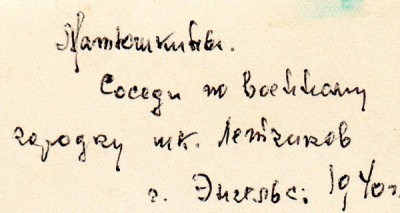 Матюшкины.
Соседи по военному
городку шк. Летчиков
г. Энгельс. 1940 г.